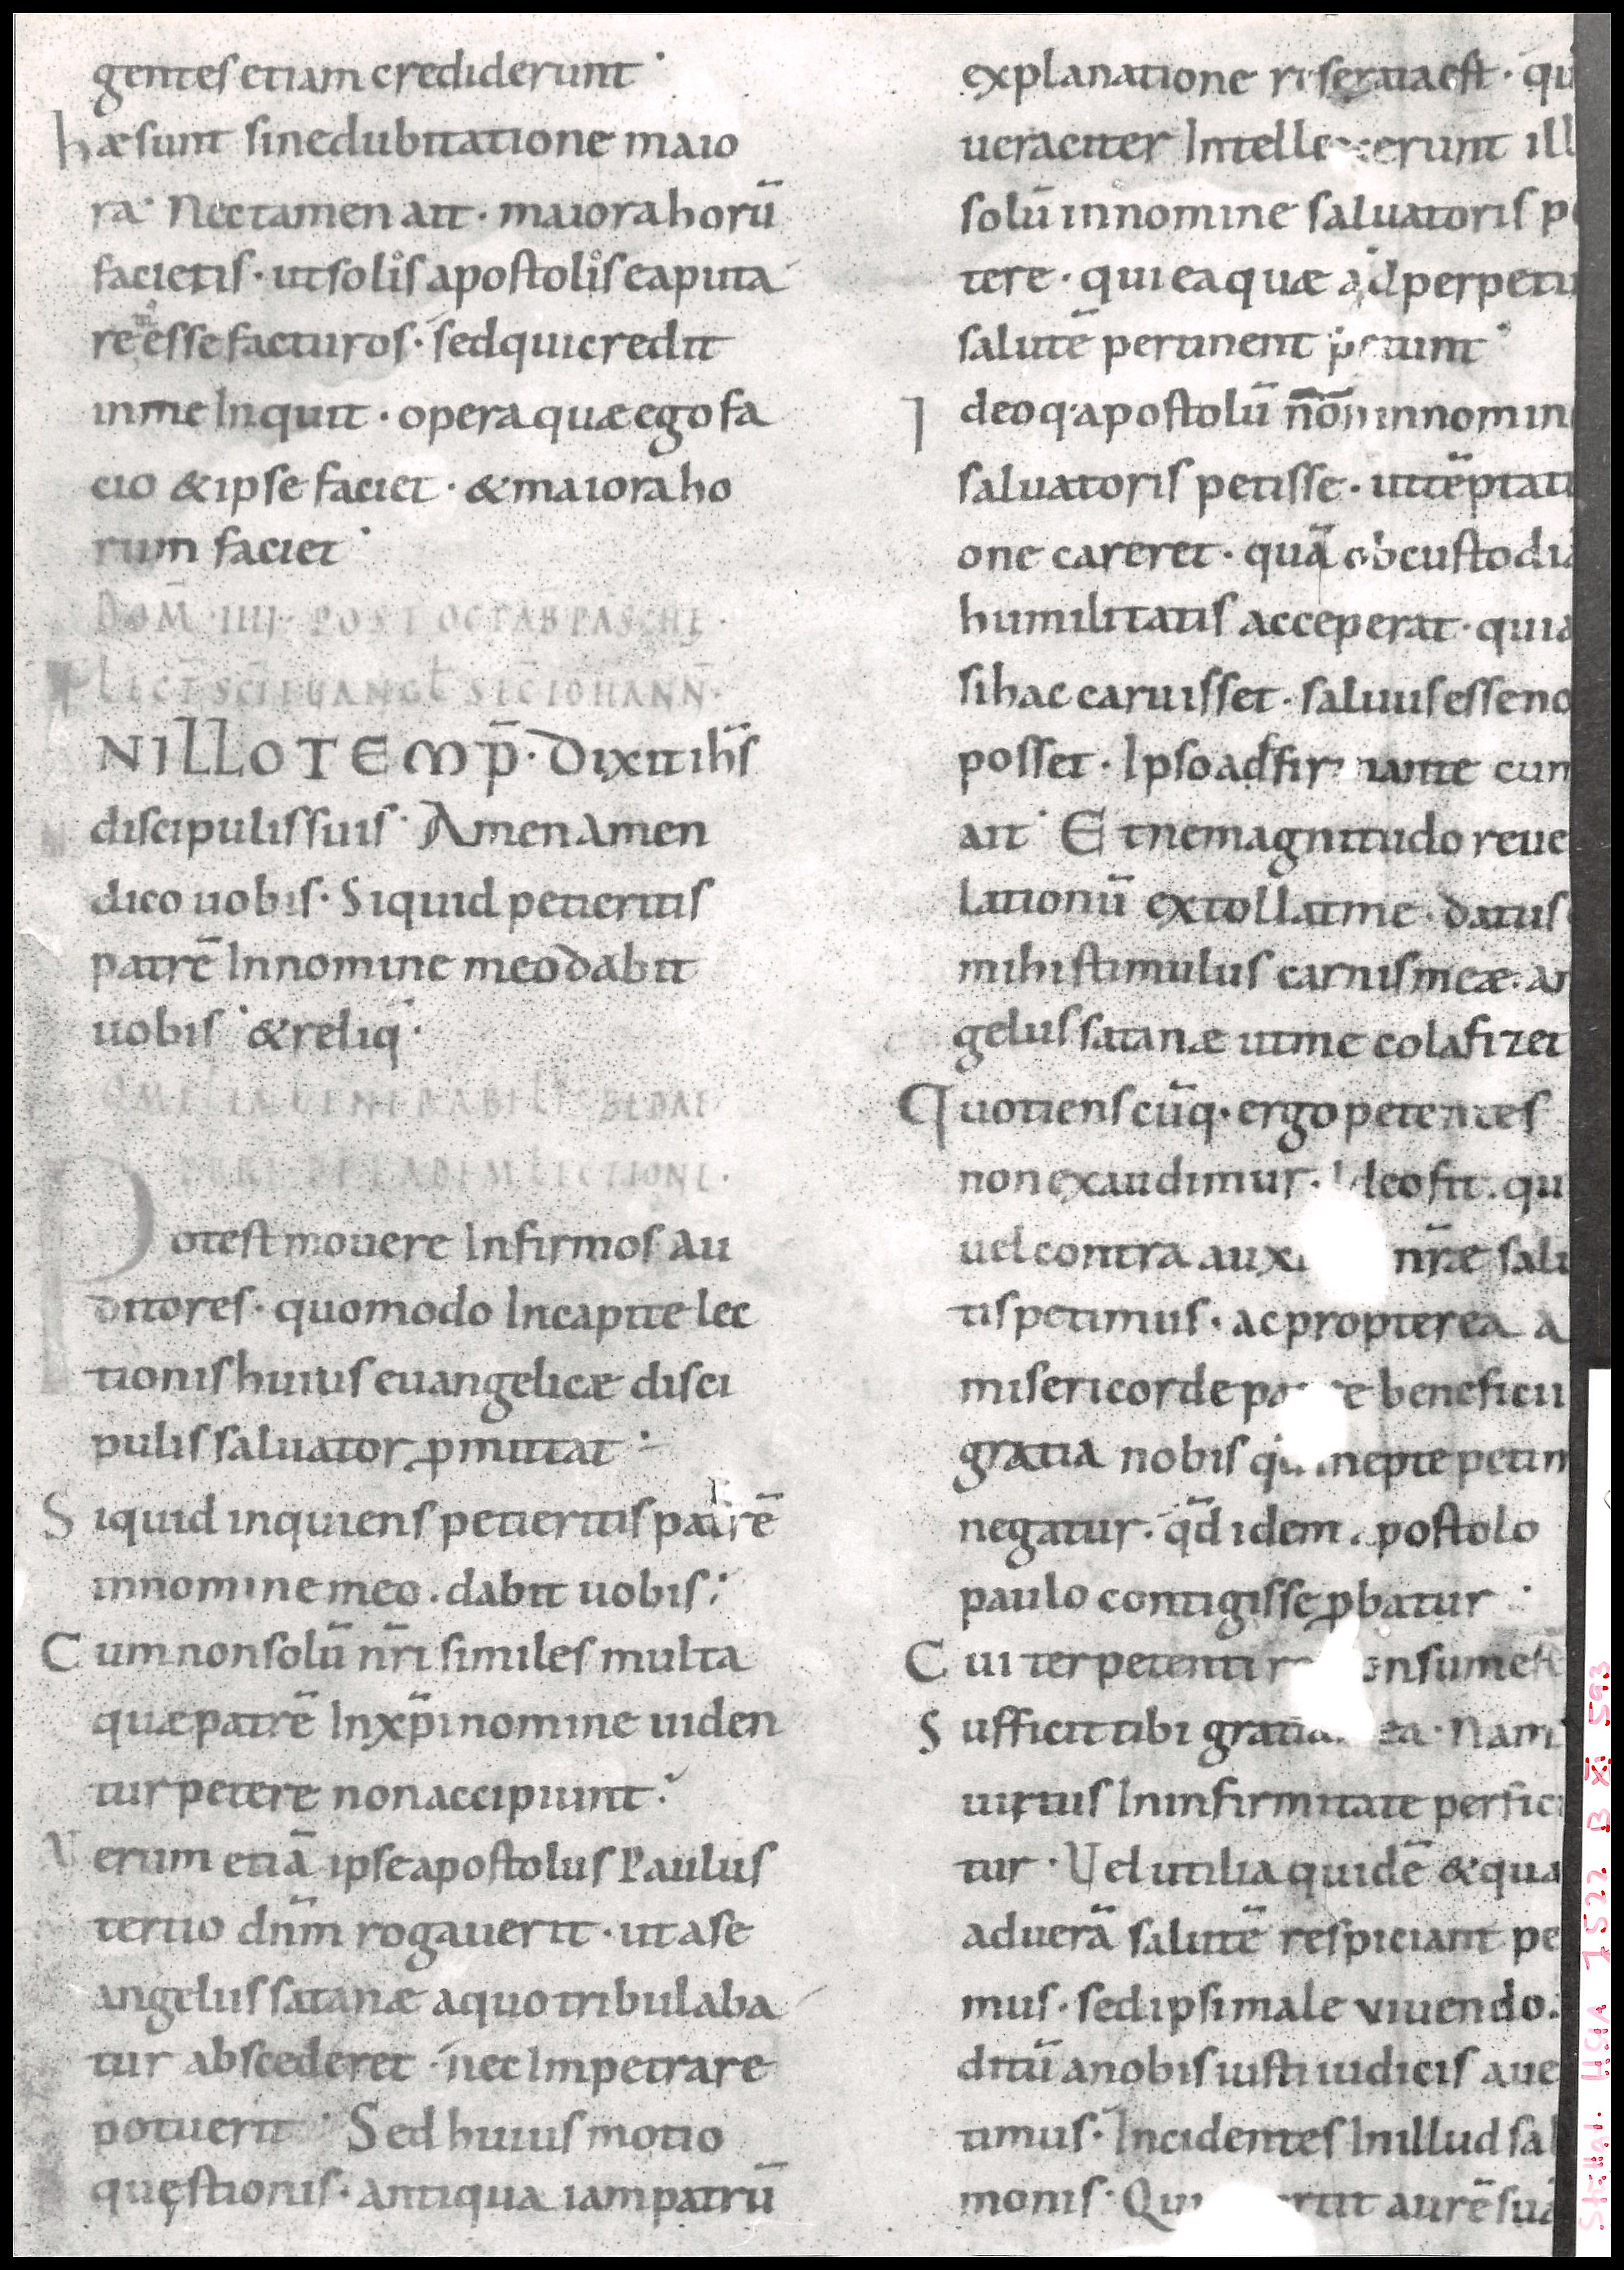 gentes etiam crediderunt·
hæ sunt sine dubitatione maio
ra· Nec tamen ait· maiora horū
facietis· ut solis apostolis ea puta
re esse facturos· sed qui credit
in me Inquit· opera quæ ego fa
cio & ipse faciet· & maiora ho
rum faciet·
DOM̄ IIII POST OCTAB PASCHE·
LECT̄ SC̄I EVANGL̄ SEC̄ IOHANN̄·
N ILLO TEMP̄· Dixit ih̄s
discipulis suis· Amen Amen
dico uobis· Siquid petieritis
patrē In nomine meo dabit
uobis· & reliq̄·
OMEL̄IA VENERABILIS BEDAE
DE EADEM LECTIONE·
Potest mouere Infirmos au
ditores· quomodo In capite lec
tionis huius euangelicæ disci
pulis saluator ꝓmittat·
Siquid inquiens petieritis patrē
in nomine meo· dabit uobis;
Cum non solū nr̄i similes multa
quæ patrē In xp̄i nomine uiden
tur petere non accipiunt·
Verum etiā ipse apostolus Paulus
tertio dn̄m rogauerit· ut a se
angelus satanæ a quo tribulaba
tur abscederet· nec Impetrare
potuerit· Sed huius motio
quęstionis· antiqua iam patrū
explanatione reserata est· qu
ueraciter Intelle erunt ill
solū in nomine saluatoris p
tere· qui ea quæ ad perpetu
salutē pertinent petunt·
Ideoq· apostolū nōn in nomin
saluatoris petisse· ut tēptati
one careret· quā ob custodiā
humilitatis acceperat· quia
si hac caruisset· saluus esse no
posset· Ipso adfir mante cum
ait· Et ne magnitudo reue
lationū extollat me· datus
mihi stimulus carnis meæ· an
gelus satanæ ut me colafizet
Quotienscūq· ergo petentes
non exaudimur· Ideo fit· qu
uel contra auxi nr̄æ salu
tis petimus· ac propterea a
misericorde pa e beneficii
gratia nobis inepte petim
negatur· qd̄ idem apostolo
paulo contigisse ꝓbatur·
Cui ter petenti nsum est
Sufficit tibi gratia ea· Nam
uirtus In infirmitate perfici
tur· Vel utilia quidē & qua
ad uerā salutē respiciant pe
mus· sed ipsi male viuendo·
ditū a nobis iusti iudicis aue
timus· Incidentes In illud sal
monis· Qui ertit aurē suā
Stellal. HStA 7522 B XI 593